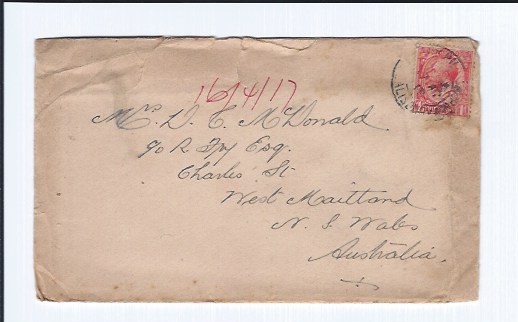 16/4/17
Mr. D. C. McDonald
c/o R Fry Esq.
Charles St
West Maitland
N. S. Wales
Australia.